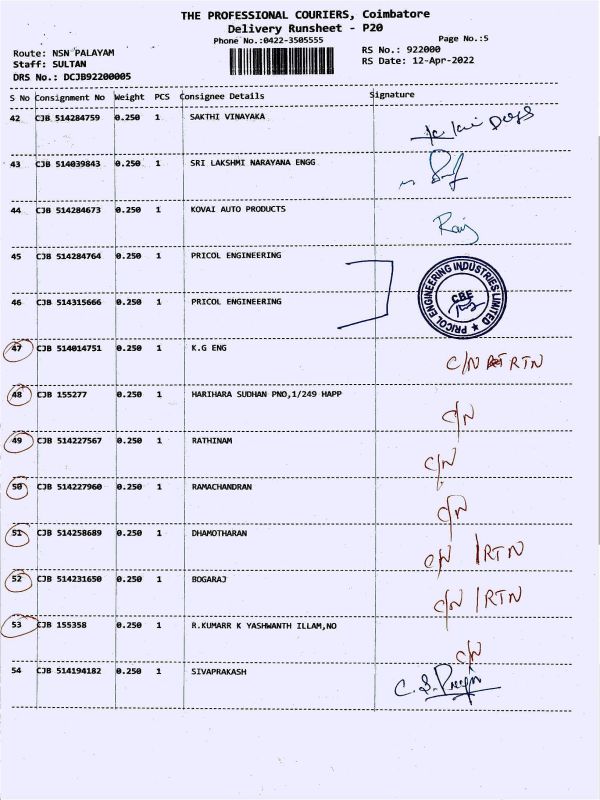 THE PROFESSIONAL COURIERS, Coimbatore
Delivery Runsheet - P20
Phone No.:0422-3505555
Page No.:5
Route: NSN PALAYAM
RS No.: 922000
Staff: SULTAN
RS Date: 12-Apr-2022
DRS No.: DCJB92200005
S No Consignment No Weight PCS Consignee Details Signature
42 CJB 514284759 0.250 1 SAKTHI VINAYAKA
43 CJB 514039843 0.250 1 SRI LAKSHMI NARAYANA ENGG
44 CJB 514284673 0.250 1 KOVAI AUTO PRODUCTS Raj
45 CJB 514284764 0.250 1 PRICOL ENGINEERING
PRICOL ENGINEERING INDUSTRIES LIMITED
CBE
46 CJB 514315666 0.250 1 PRICOL ENGINEERING
47 CJB 514014751 0.250 1 K.G ENG C/N RTN
48 CJB 155277 0.250 1 HARIHARA SUDHAN PNO,1/249 HAPP C/N
49 CJB 514227567 0.250 1 RATHINAM C/N
50 CJB 514227960 0.250 1 RAMACHANDRAN C/N
51 CJB 514258689 0.250 1 DHAMOTHARAN C/N /RTN
52 CJB 514231650 0.250 1 BOGARAJ C/N /RTN
53 CJB 155358 0.250 1 R.KUMARR K YASHWANTH ILLAM,NO C/N
54 CJB 514194182 0.250 1 SIVAPRAKASH C.S.